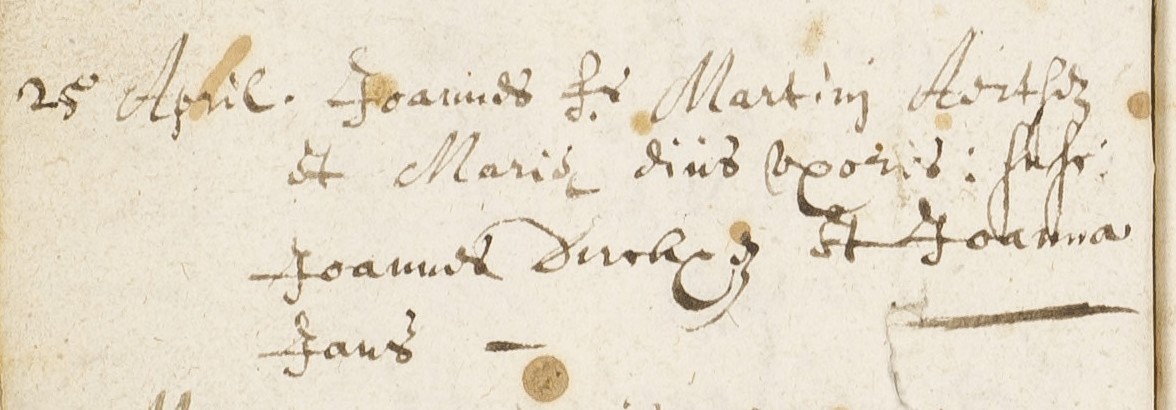 25 April. Joannes fs Martinj Aertsz
et Marię eiius vxoris: susc:
Joannes Dircksz et Joanna
Jans —